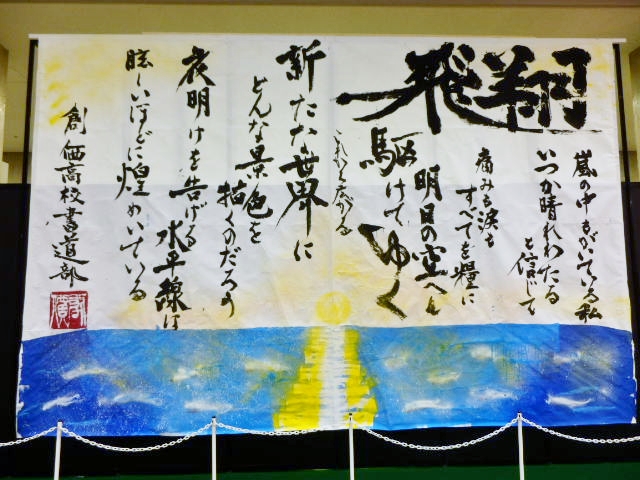 飛翔
嵐の中もがいている私
いつか晴れわたる
と信じて
痛みも涙も
すべてを糧に
明日の空へと
駆けてゆく
新たな世界に
どんな景色を
描くのだろう
夜明けを告げる
水平線は
眩しいほどに煌めいている
創価高校書道部